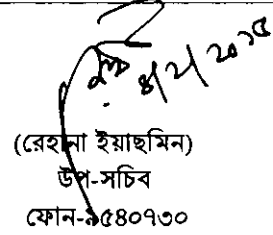 ৪/২/২০১৫
(রেহানা ইয়াছমিন)
উপ-সচিব
ফোন-৯৫৪০৭৩০